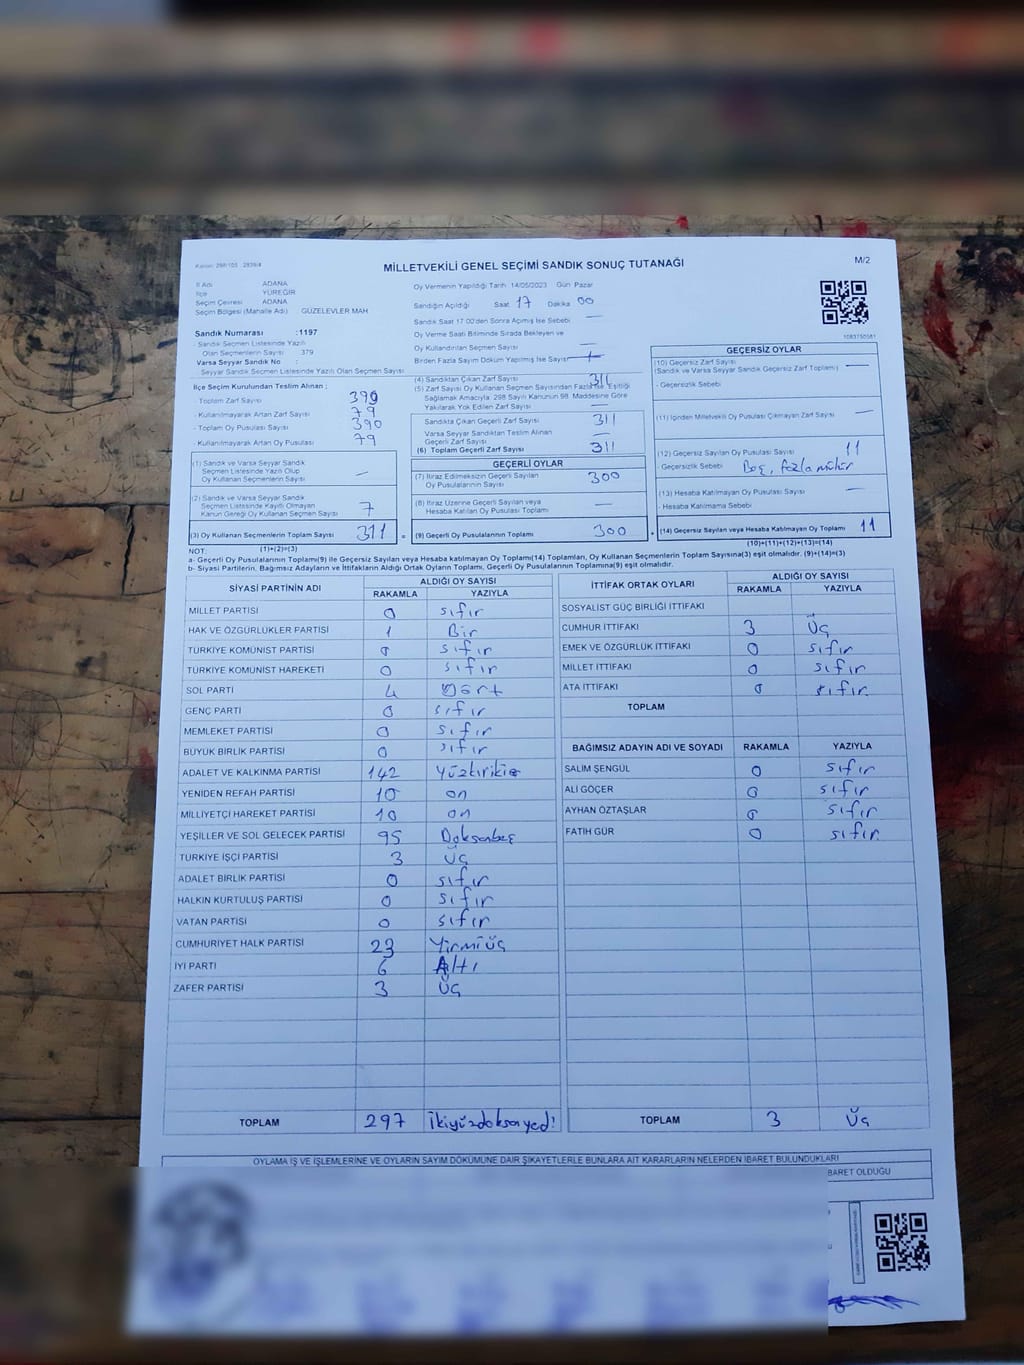 Kanun: 298/105 : 2839/4
MİLLETVEKİLİ GENEL SEÇİMİ SANDIK SONUÇ TUTANAĞI
M/2
İl Adı ADANA
İlçe YÜREĞİR
Seçim Çevresi ADANA
Seçim Bölgesi (Mahalle Adı) GÜZELEVLER MAH
Sandık Numarası : 1197
- Sandık Seçmen Listesinde Yazılı
Olan Seçmenlerin Sayısı 379
Varsa Seyyar Sandık No :
Seyyar Sandık Seçmen Listesinde Yazılı Olan Seçmen Sayısı
Oy Vermenin Yapıldığı Tarih 14/05/2023 Gün Pazar
Sandığın Açıldığı Saat 17 Dakika 00
Sandık Saat 17.00'den Sonra Açılmış İse Sebebi —
Oy Verme Saati Bitiminde Sırada Bekleyen ve
Oy Kullandırılan Seçmen Sayısı —
Birden Fazla Sayım Döküm Yapılmış İse Sayısı
İlçe Seçim Kurulundan Teslim Alınan ;
- Toplam Zarf Sayısı 390
- Kullanılmayarak Artan Zarf Sayısı 79
- Toplam Oy Pusulası 390
- Kullanılmayarak Artan Oy Pusulası 79
(1) Sandık ve Varsa Seyyar Sandık
Seçmen Listesinde Yazılı Olup
Oy Kullanan Seçmenlerin Sayısı —
(2) Sandık ve Varsa Seyyar Sandık
Seçmen Listesinde Kayıtlı Olmayan
Kanun Gereği Oy Kullanan Seçmen Sayısı 7
(3) Oy Kullanan Seçmenlerin Toplam Sayısı 311
(1)+(2)=(3)
(4) Sandıktan Çıkan Zarf Sayısı 311
(5) Zarf Sayısı Oy Kullanan Seçmen Sayısından Fazla İse, Eşitliği
Sağlamak Amacıyla; 298 Sayılı Kanunun 98. Maddesine Göre
Yakılarak Yok Edilen Zarf Sayısı —
Sandıkta Çıkan Geçerli Zarf Sayısı 311
Varsa Seyyar Sandıktan Teslim Alınan
Geçerli Zarf Sayısı —
(6) Toplam Geçerli Zarf Sayısı 311
GEÇERLİ OYLAR
(7) İtiraz Edilmeksizin Geçerli Sayılan
Oy Pusulalarının Sayısı 300
(8) İtiraz Üzerine Geçerli Sayılan veya
Hesaba Katılan Oy Pusulası Toplamı —
(9) Geçerli Oy Pusulalarının Toplamı 300
1083750581
GEÇERSİZ OYLAR
(10) Geçersiz Zarf Sayısı
(Sandık ve Varsa Seyyar Sandık Geçersiz Zarf Toplamı) —
- Geçersizlik Sebebi
(11) İçinden Milletvekili Oy Pusulası Çıkmayan Zarf Sayısı —
(12) Geçersiz Sayılan Oy Pusulası Sayısı 11
- Geçersizlik Sebebi Boş, fazla mühür
(13) Hesaba Katılmayan Oy Pusulası Sayısı —
- Hesaba Katılmama Sebebi
(14) Geçersiz Sayılan veya Hesaba Katılmayan Oy Toplamı 11
(10)+(11)+(12)+(13)=(14)
NOT:
a- Geçerli Oy Pusulalarının Toplamı(9) ile Geçersiz Sayılan veya Hesaba katılmayan Oy Toplamı(14) Toplamları, Oy Kullanan Seçmenlerin Toplam Sayısına(3) eşit olmalıdır. (9)+(14)=(3)
b- Siyasi Partilerin, Bağımsız Adayların ve İttifakların Aldığı Ortak Oyların Toplamı, Geçerli Oy Pusulalarının Toplamına(9) eşit olmalıdır.
SİYASİ PARTİNİN ADI ALDIĞI OY SAYISI
RAKAMLA YAZIYLA
MİLLET PARTİSİ 0 sıfır
HAK VE ÖZGÜRLÜKLER PARTİSİ 1 Bir
TÜRKİYE KOMÜNİST PARTİSİ 0 sıfır
TÜRKİYE KOMÜNİST HAREKETİ 0 sıfır
SOL PARTİ 4 Dört
GENÇ PARTİ 0 sıfır
MEMLEKET PARTİSİ 0 sıfır
BÜYÜK BİRLİK PARTİSİ 0 sıfır
ADALET VE KALKINMA PARTİSİ 142 yüzkırkiki
YENİDEN REFAH PARTİSİ 10 on
MİLLİYETÇİ HAREKET PARTİSİ 10 on
YEŞİLLER VE SOL GELECEK PARTİSİ 95 Doksanbeş
TÜRKİYE İŞÇİ PARTİSİ 3 Üç
ADALET BİRLİK PARTİSİ 0 sıfır
HALKIN KURTULUŞ PARTİSİ 0 sıfır
VATAN PARTİSİ 0 sıfır
CUMHURİYET HALK PARTİSİ 23 Yirmiüç
İYİ PARTİ 6 Altı
ZAFER PARTİSİ 3 Üç
TOPLAM 297 ikiyüzdoksanyedi
İTTİFAK ORTAK OYLARI ALDIĞI OY SAYISI
RAKAMLA YAZIYLA
SOSYALİST GÜÇ BİRLİĞİ İTTİFAKI
CUMHUR İTTİFAKI 3 Üç
EMEK VE ÖZGÜRLÜK İTTİFAKI 0 sıfır
MİLLET İTTİFAKI 0 sıfır
ATA İTTİFAKI 0 sıfır
TOPLAM
BAĞIMSIZ ADAYIN ADI VE SOYADI RAKAMLA YAZIYLA
SALİM ŞENGÜL 0 sıfır
ALİ GÖÇER 0 sıfır
AYHAN ÖZTAŞLAR 0 sıfır
FATİH GÜR 0 sıfır
TOPLAM 3 Üç
OYLAMA İŞ VE İŞLEMLERİNE VE OYLARIN SAYIM DÖKÜMÜNE DAİR ŞİKAYETLERLE BUNLARA AİT KARARLARIN NELERDEN İBARET BULUNDUKLARI
BARET OLDUĞU